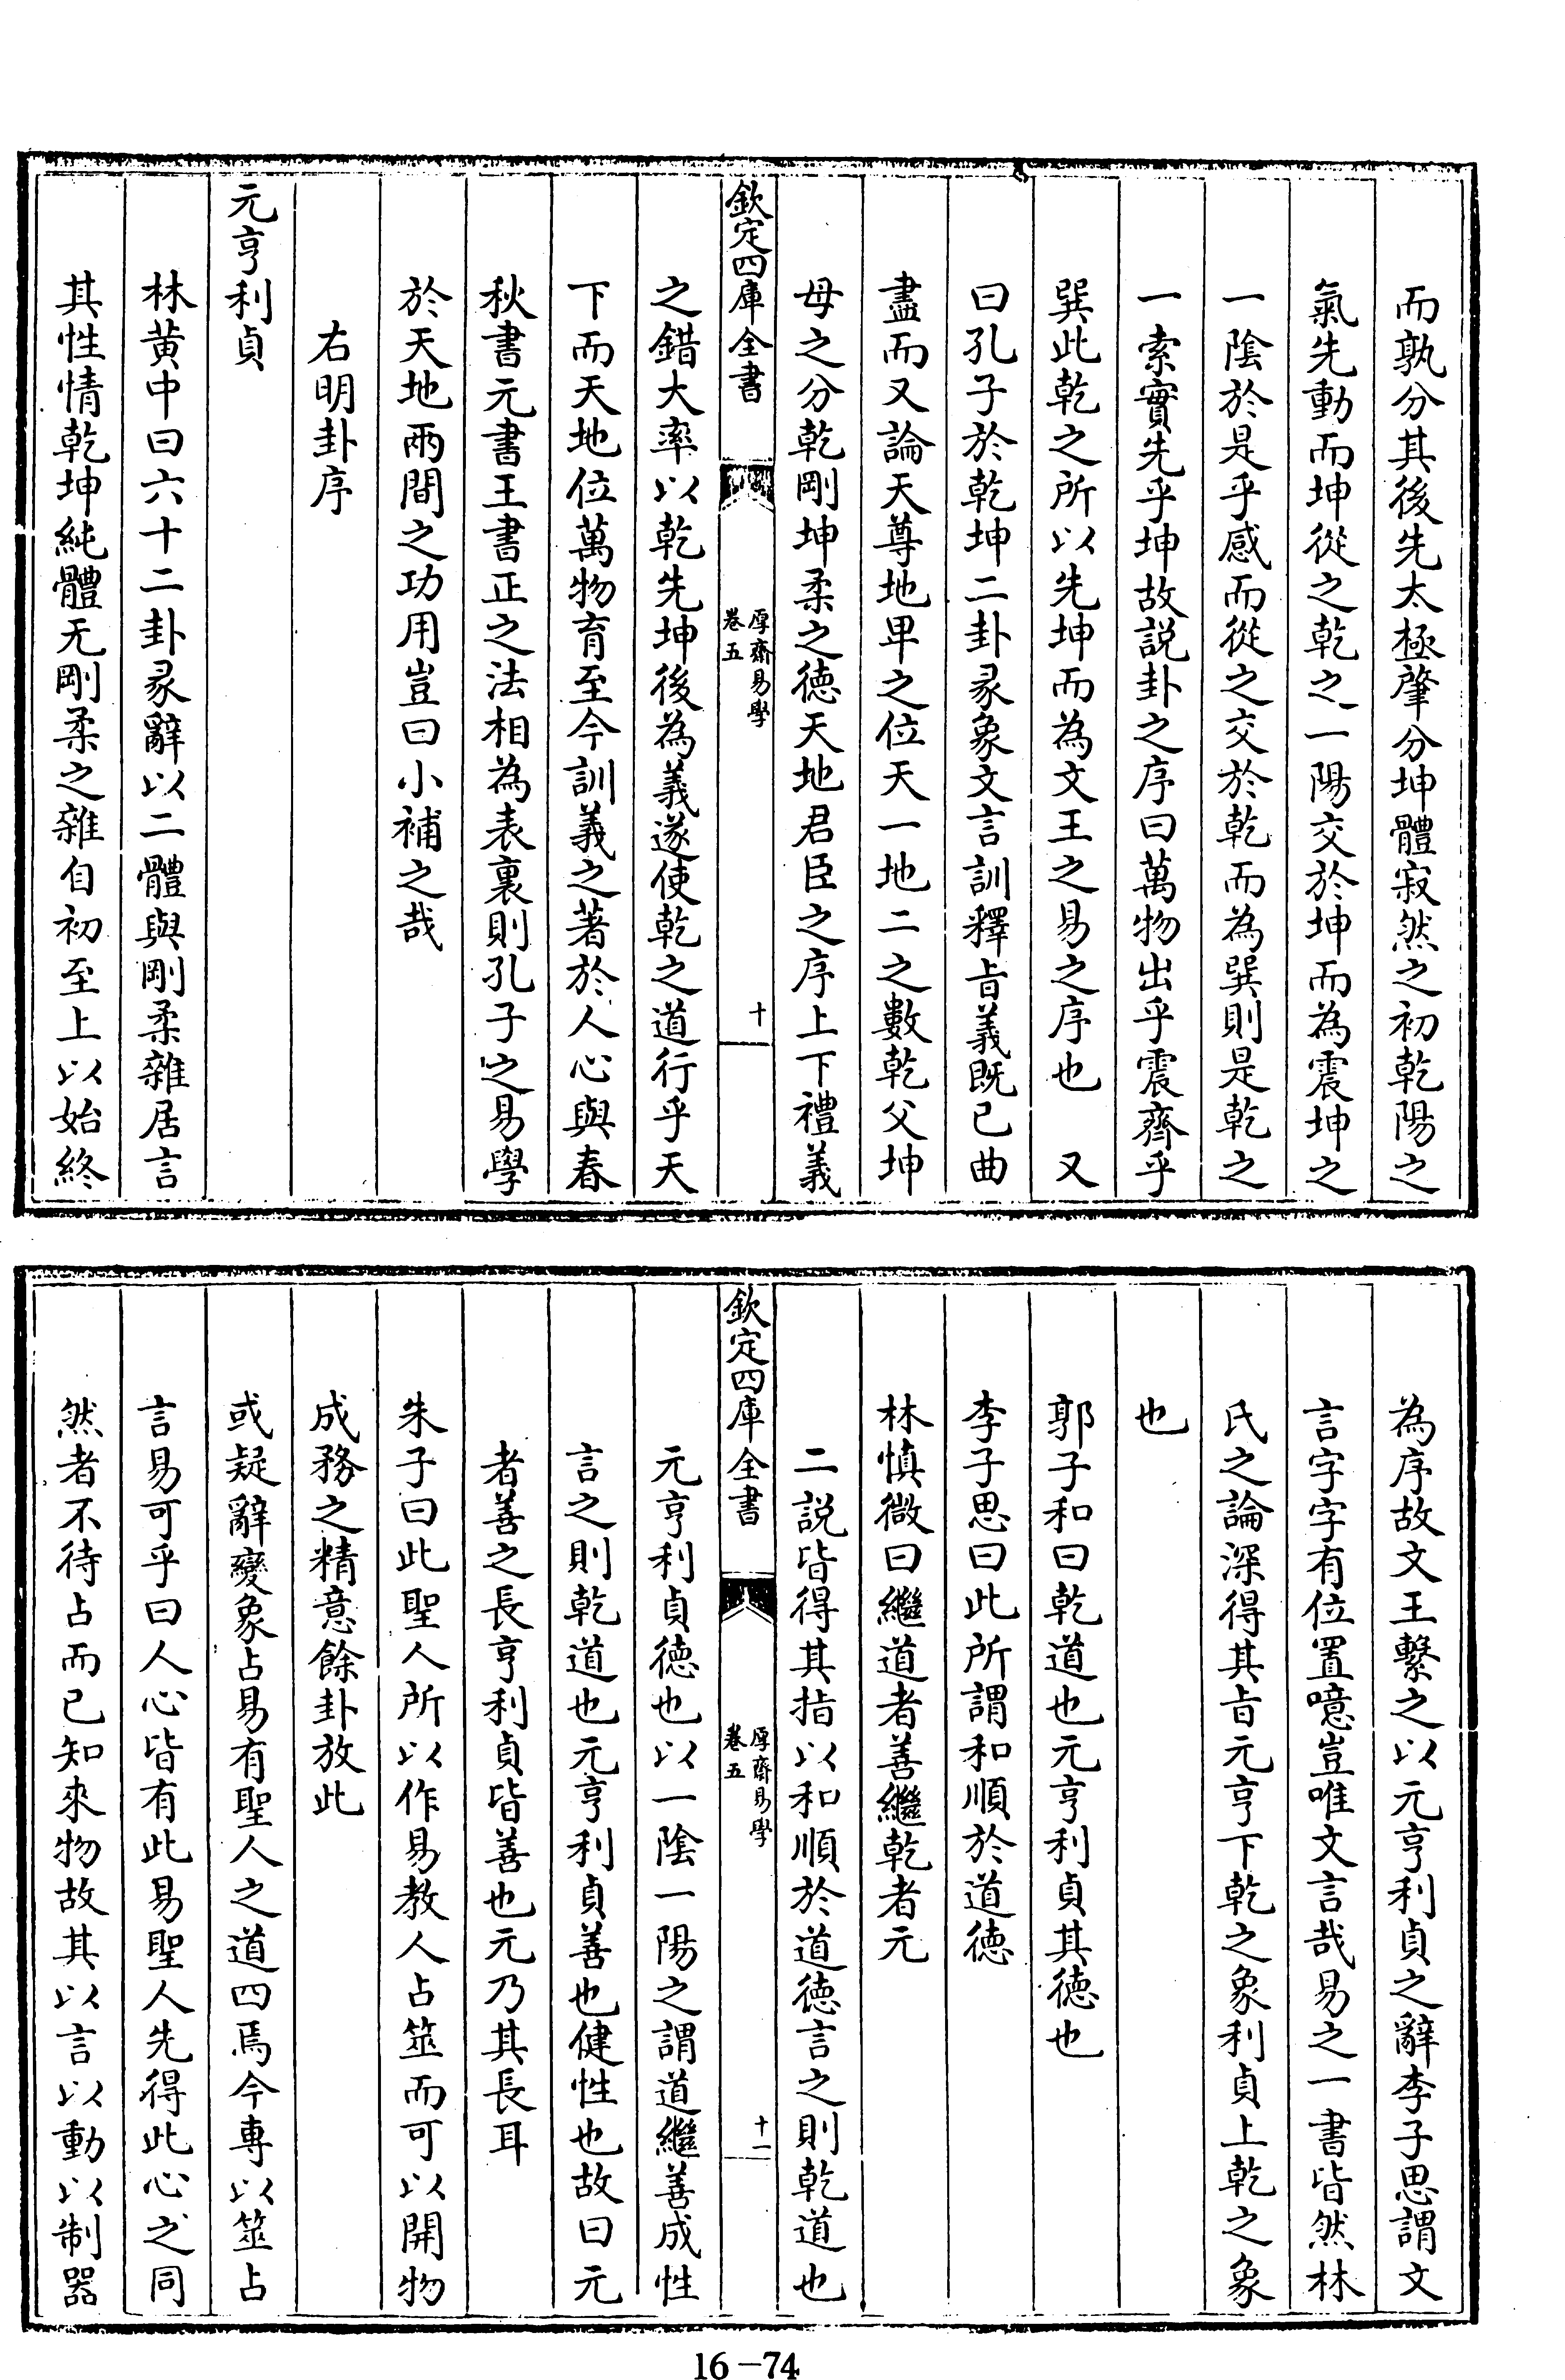 而孰分其後先太極肇分坤體寂然之初乾陽之
氣先動而坤從之乾之一陽交於坤而為震坤之
一陰於是乎感而從之交於乾而為巽則是乾之
一索實先乎坤故説卦之序曰萬物出乎震齊乎
巽此乾之所以先坤而為文王之易之序也 又
曰孔子於乾坤二卦彖象文言訓釋旨義既已曲
盡而又論天尊地卑之位天一地二之數乾父坤
母之分乾剛坤柔之德天地君臣之序上下禮義
欽定四庫全書
厚齋易學
卷五
十
之錯大率以乾先坤後為義遂使乾之道行乎天
下而天地位萬物育至今訓義之著於人心與春
秋書元書王書正之法相為表裏則孔子之易學
於天地兩間之功用豈曰小補之哉
右明卦序
元亨利貞
林黄中曰六十二卦彖辭以二體與剛柔雜居言
其性情乾坤純體无剛柔之雜自初至上以始終
為序故文王繫之以元亨利貞之辭李子思謂文
言字字有位置噫豈唯文言哉易之一書皆然林
氏之論深得其旨元亨下乾之象利貞上乾之象
也
郭子和曰乾道也元亨利貞其德也
李子思曰此所謂和順於道德
林慎微曰繼道者善繼乾者元
二説皆得其指以和順於道德言之則乾道也
欽定四庫全書
厚齋易學
卷五
十一
元亨利貞德也以一陰一陽之謂道繼善成性
言之則乾道也元亨利貞善也健性也故曰元
者善之長亨利貞皆善也元乃其長耳
朱子曰此聖人所以作易教人占筮而可以開物
成務之精意餘卦放此
或疑辭變象占易有聖人之道四焉今專以筮占
言易可乎曰人心皆有此易聖人先得此心之同
然者不待占而已知來物故其以言以動以制器
16-74